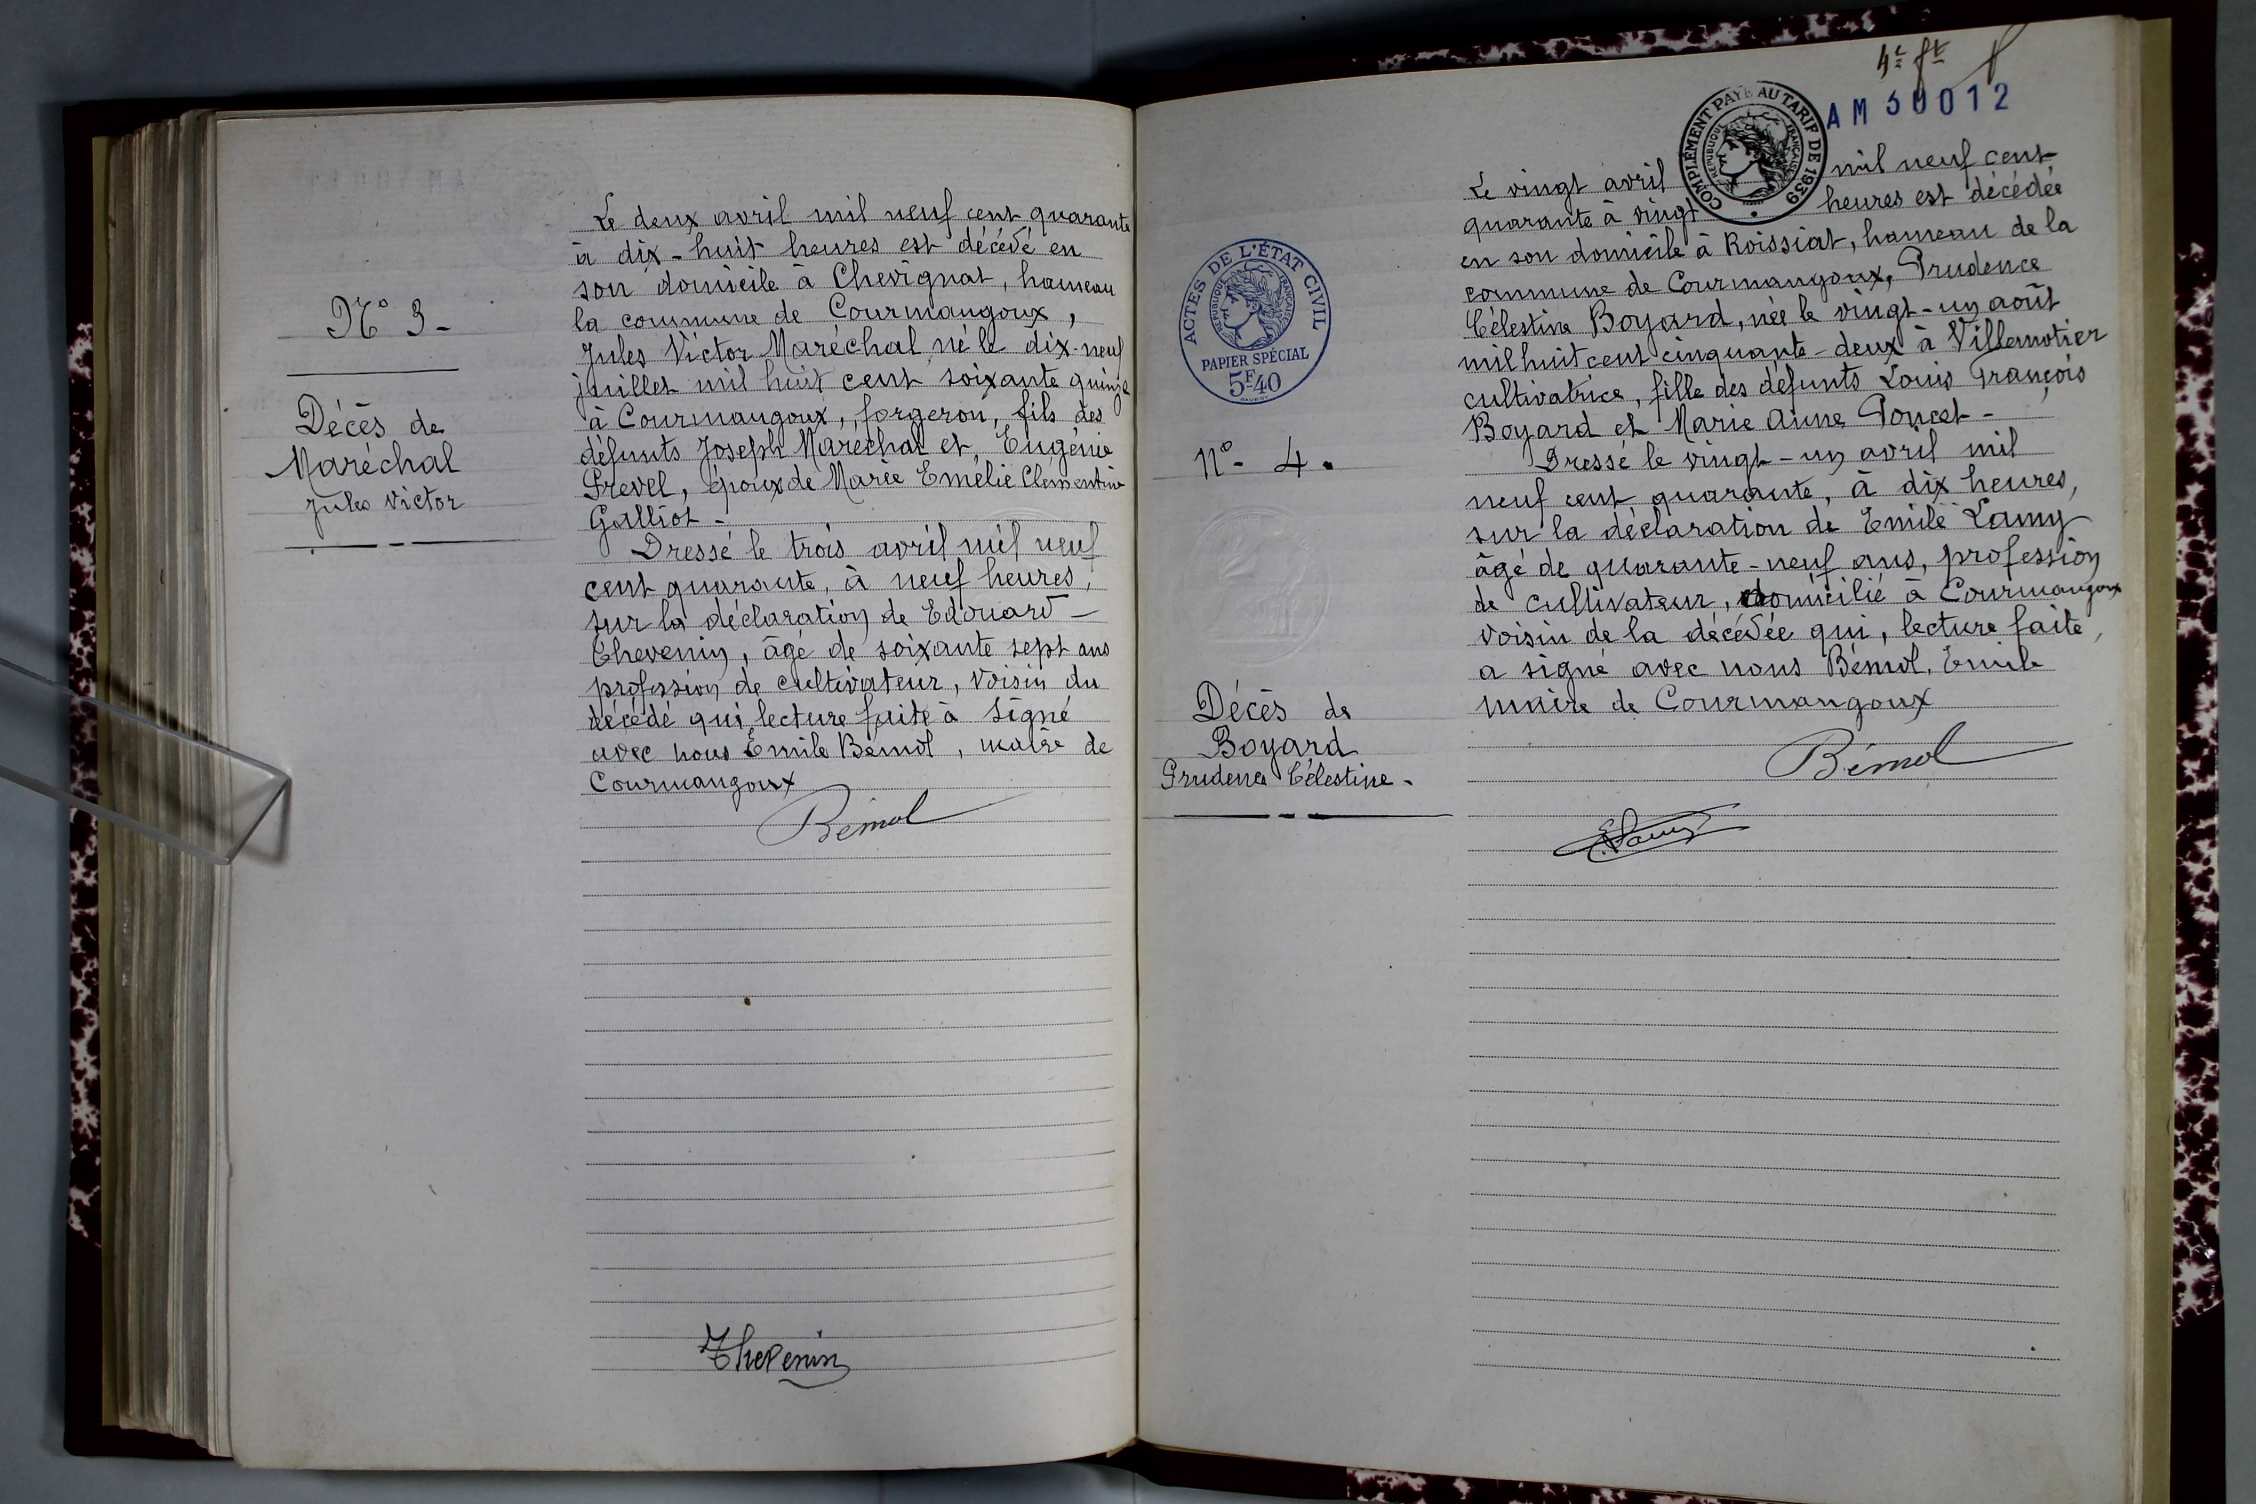 N° 3 -
Décès de
Maréchal
Jules Victor
Le deux avril mil neuf cent quarante
à dix-huit heures est décédé en
son domicile à Chevignat, hameau
la commune de Courmangoux,
Jules Victor Maréchal né le dix-neuf
juillet mil huit cent soixante quinze
à Courmangoux, forgeron, fils des
défunts Joseph Maréchal et Eugénie
Prevel, époux de Marie Emélie Clementine
Galliot -
Dressé le trois avril mil neuf
cent quarante, à neuf heures,
sur la déclaration de Edouard -
Chevenin, âgé de soixante sept ans
profession de cultivateur, voisin du
décédé qui, lecture faite à signé
avec nous Emile Bémol, maire de
Courmangoux
Bémol
Thevenin
4e ft
COMPLÉMENT PAYÉ AU TARIF DE 1939
RÉPUBLIQUE FRANÇAISE
AM 30012
ACTES DE L'ÉTAT CIVIL
RÉPUBLIQUE FRANÇAISE
PAPIER SPÉCIAL
5F40
n° - 4.
Décès de
Boyard
Prudence Célestine -
Le vingt avril mil neuf cent
quarante à vingt heures est décédée
en son domicile à Roissiat, hameau de la
commune de Courmangoux, Prudence
Célestine Boyard, née le vingt-un août
mil huit cent cinquante-deux à Villemotier
cultivatrice, fille des défunts Louis François
Boyard et Marie Anne Poncet -
Dressé le vingt-un avril mil
neuf cent quarante, à dix heures,
sur la déclaration de Emile Lamy
âgé de quarante-neuf ans, profession
de cultivateur, domicilié à Courmangoux
voisin de la décédée qui, lecture faite,
a signé avec nous Bémol, Emile
maire de Courmangoux
Bémol
E. Lamy